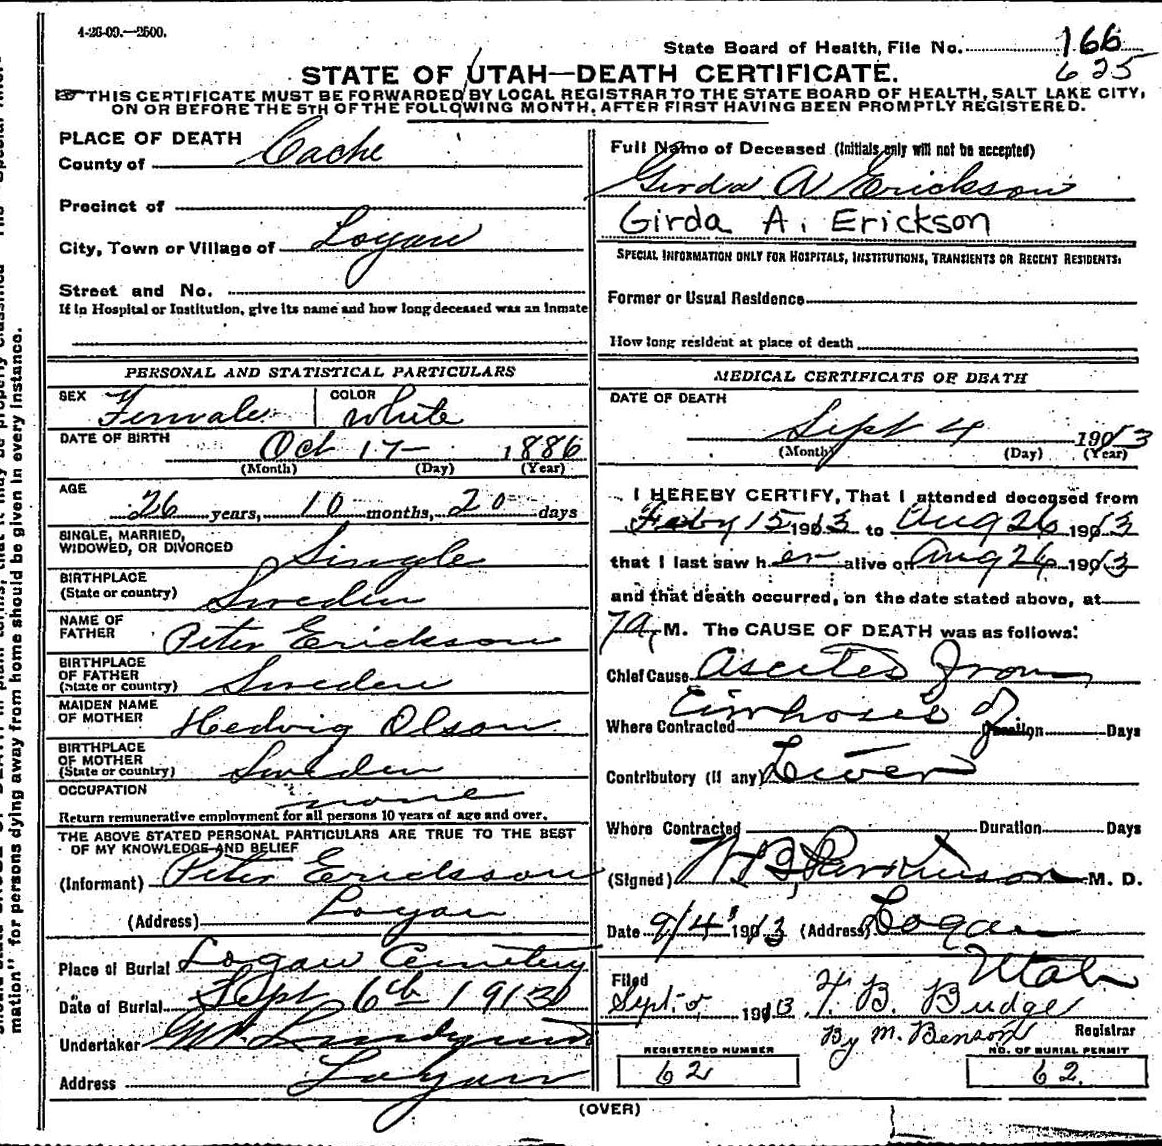 4-26-09.—2500.
State Board of Health, File No. 166
625
STATE OF UTAH—DEATH CERTIFICATE.
THIS CERTIFICATE MUST BE FORWARDED BY LOCAL REGISTRAR TO THE STATE BOARD OF HEALTH, SALT LAKE CITY,
ON OR BEFORE THE 5TH OF THE FOLLOWING MONTH, AFTER FIRST HAVING BEEN PROMPTLY REGISTERED.
PLACE OF DEATH
County of Cache
Precinct of
City, Town or Village of Logan
Street and No.
If in Hospital or Institution, give its name and how long deceased was an inmate
Full Name of Deceased (Initials only will not be accepted)
Girda A Erickson
Girda A. Erickson
SPECIAL INFORMATION ONLY FOR HOSPITALS, INSTITUTIONS, TRANSIENTS OR RECENT RESIDENTS:
Former or Usual Residence
How long resident at place of death
PERSONAL AND STATISTICAL PARTICULARS
SEX Female COLOR White
DATE OF BIRTH Oct 17— 1886
(Month) (Day) (Year)
AGE
26 years, 10 months, 20 days
SINGLE, MARRIED,
WIDOWED, OR DIVORCED Single
BIRTHPLACE
(State or country) Sweden
NAME OF
FATHER Peter Erickson
BIRTHPLACE
OF FATHER
(State or country) Sweden
MAIDEN NAME
OF MOTHER Hedvig Olson
BIRTHPLACE
OF MOTHER
(State or country) Sweden
OCCUPATION none
Return remunerative employment for all persons 10 years of age and over.
THE ABOVE STATED PERSONAL PARTICULARS ARE TRUE TO THE BEST
OF MY KNOWLEDGE AND BELIEF
(Informant) Peter Erickson
(Address) Logan
Place of Burial Logan Cemetery
Date of Burial Sept 6th 1913
Undertaker Lundquist
Address Logan
MEDICAL CERTIFICATE OF DEATH
DATE OF DEATH
Sept 4 1913
(Month) (Day) (Year)
I HEREBY CERTIFY, That I attended deceased from
Feby 15 1913 to Aug 26 1913
that I last saw her alive on Aug 26 1913
and that death occurred, on the date stated above, at
7 a. M. The CAUSE OF DEATH was as follows:
Chief Cause Ascites from
Cirrhosis of
Where Contracted Duration Days
Contributory (If any) Liver
Where Contracted Duration Days
(Signed) W B Parkinson M. D.
Date 9/4 1913 (Address) Logan
Utah
Filed
Sept. 5, 1913 F. B. Budge
Registrar
By M. Benson
REGISTERED NUMBER
62
NO. OF BURIAL PERMIT
62.
(OVER)
mation" for persons dying away from home should be given in every instance.